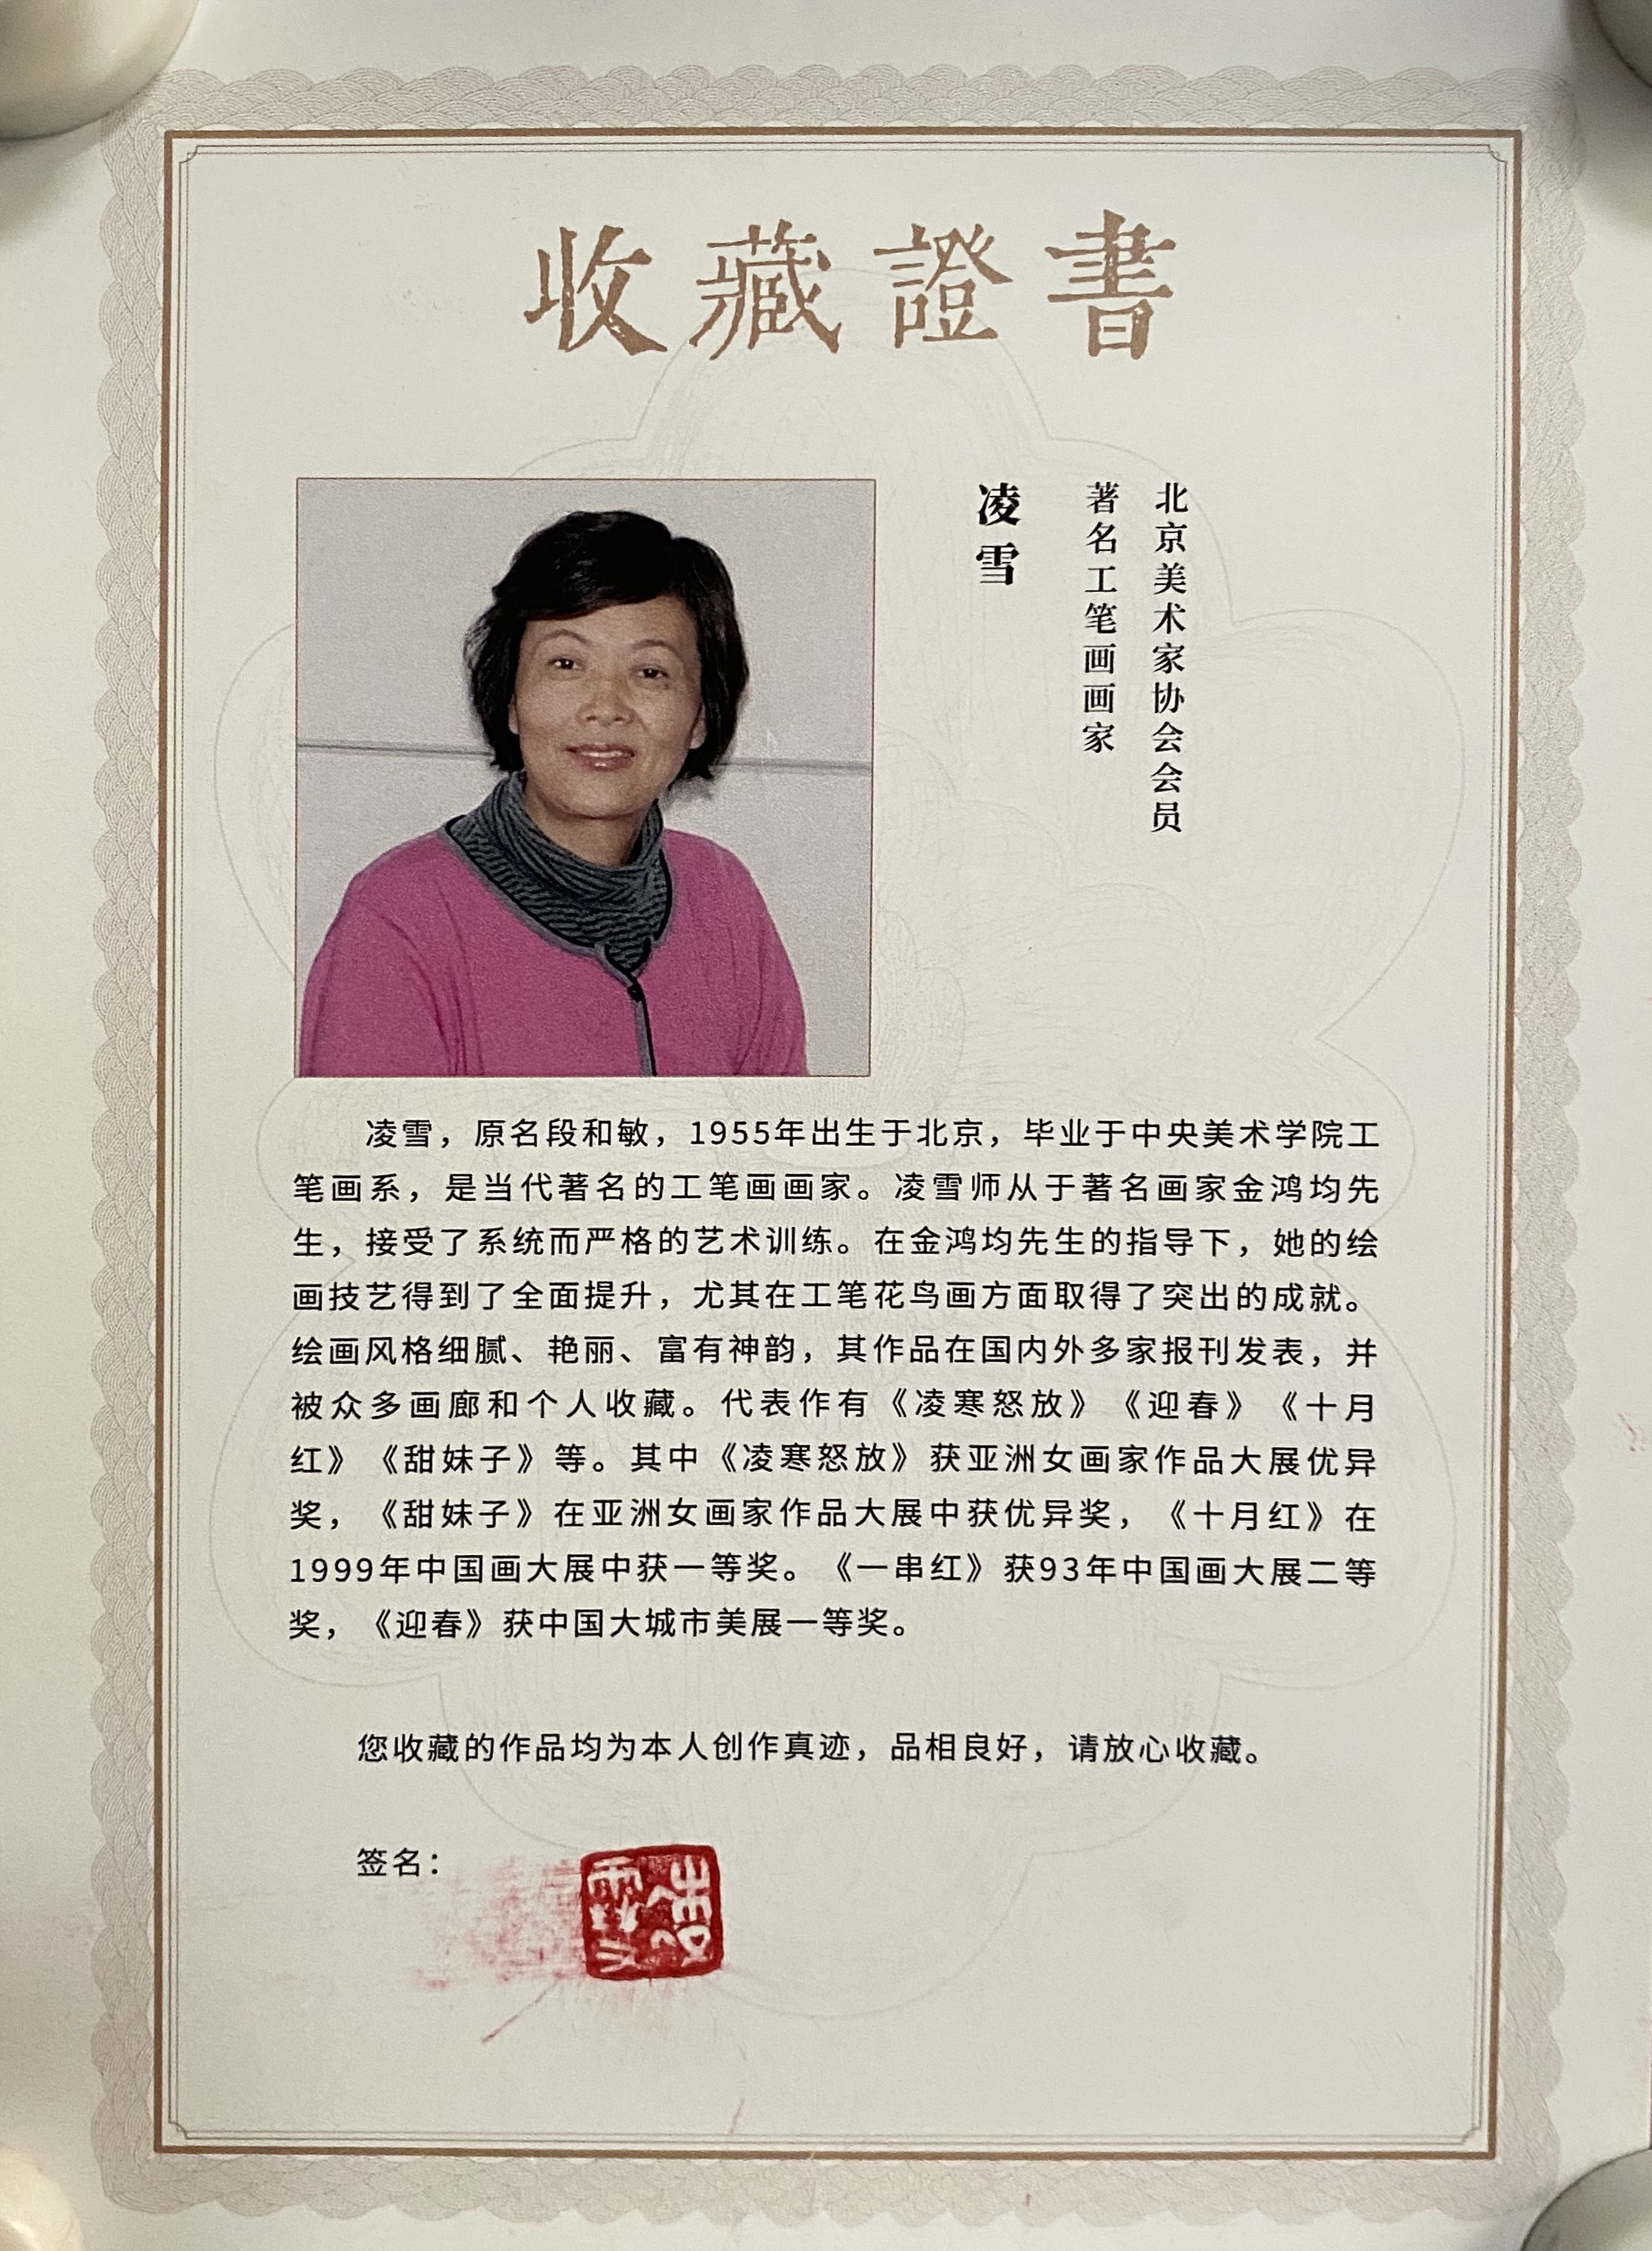 收藏證書
北京美术家协会会员
著名工笔画画家
凌雪
凌雪，原名段和敏，1955年出生于北京，毕业于中央美术学院工
笔画系，是当代著名的工笔画画家。凌雪师从于著名画家金鸿均先
生，接受了系统而严格的艺术训练。在金鸿均先生的指导下，她的绘
画技艺得到了全面提升，尤其在工笔花鸟画方面取得了突出的成就。
绘画风格细腻、艳丽、富有神韵，其作品在国内外多家报刊发表，并
被众多画廊和个人收藏。代表作有《凌寒怒放》《迎春》《十月
红》《甜妹子》等。其中《凌寒怒放》获亚洲女画家作品大展优异
奖，《甜妹子》在亚洲女画家作品大展中获优异奖，《十月红》在
1999年中国画大展中获一等奖。《一串红》获93年中国画大展二等
奖，《迎春》获中国大城市美展一等奖。
您收藏的作品均为本人创作真迹，品相良好，请放心收藏。
签名：